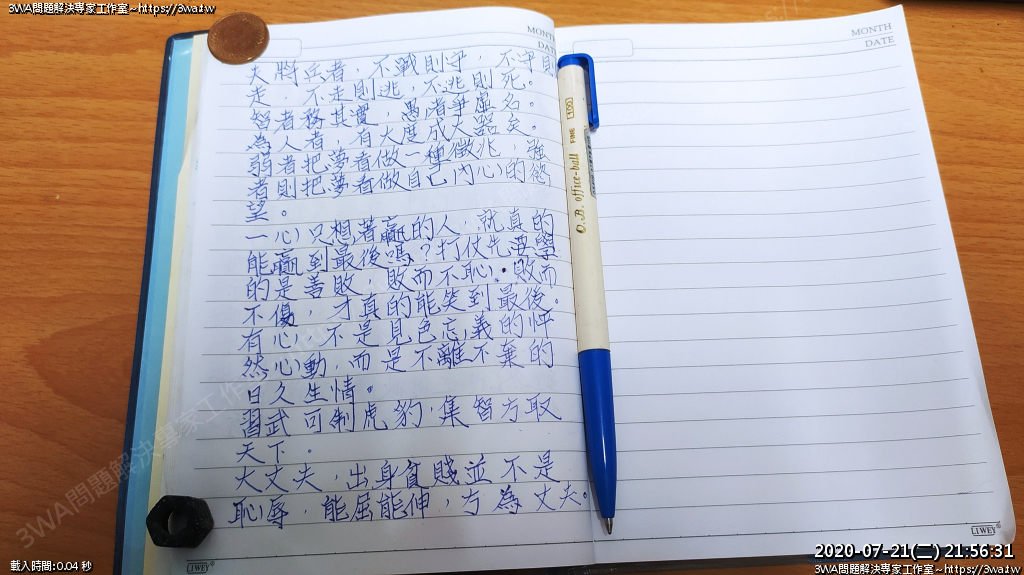 3WA問題解決專家工作室~https://3wa.tw
3WA問題解決專家工作室~https://3wa.tw
MONTH
DATE
MONTH
DATE
大將兵者,不戰則守,不守則
走,不走則逃,不逃則死。
智者務其實,愚者爭虛名。
為人者,有大度成大器矣。
弱者把夢看做一種徵兆,強
者則把夢看做自己內心的慾
望。
一心只想著贏的人,就真的
能贏到最後嗎?打仗先要學
的是善敗,敗而不恥,敗而
不傷,才真的能笑到最後。
有心,不是見色忘義的怦
然心動,而是不離不棄的
日久生情。
習武可制虎豹,集智方取
天下。
大丈夫,出身貧賤並不是
恥辱,能屈能伸,方為丈夫。
O.B. office-ball FINE 100
LIWEY
LIWEY
3WA問題解決專家工作室
載入時間:0.04 秒
2020-07-21(二) 21:56:31
3WA問題解決專家工作室~https://3wa.tw